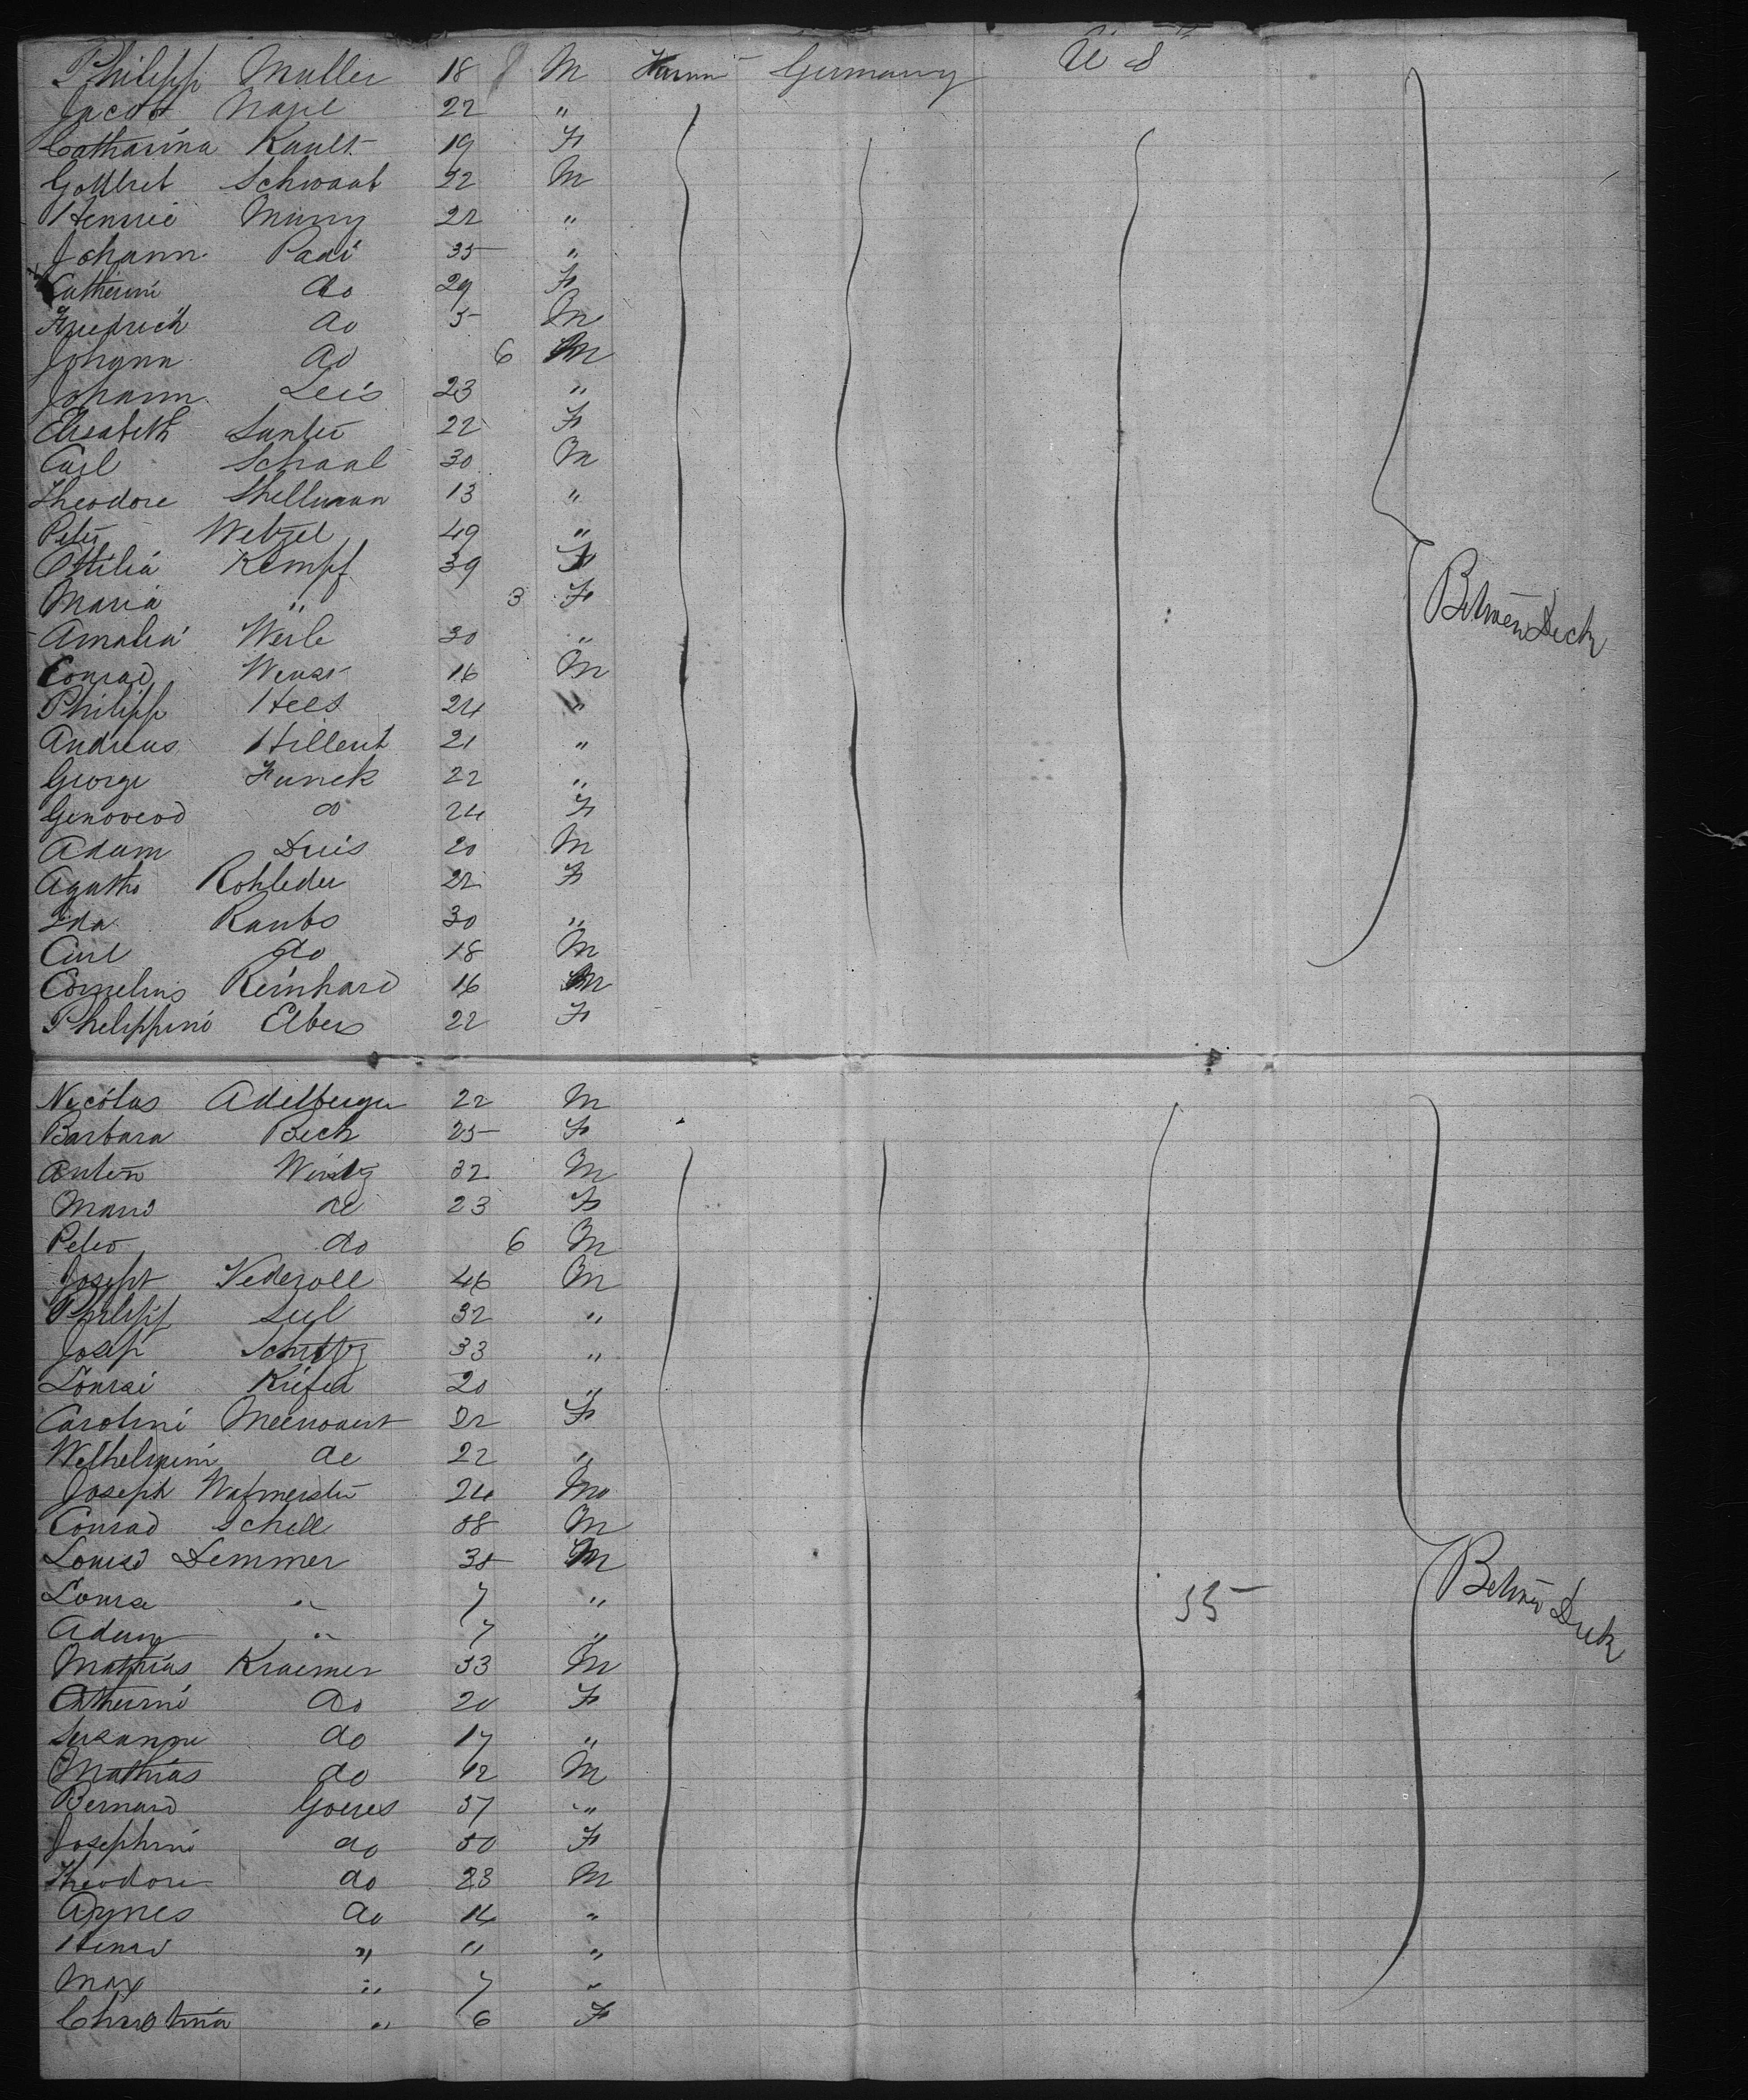 Philipp Muller 18 M Germany U S
Jacob Nagel 22 "
Catharina Kault 19 F
Gottlieb Schwaab 22 M
Henrie 22 "
Johann Padi 35 "
Catherini do 29 F
Friedrich do 5 M
Johann do 6 M
Johann Leis 23 "
Elisabeth Santer 22 F
Carl Schaal 30 M
Theodore Shellman 13 "
Peter Wetzel 49 "
Ottilia Kempf 39 F
Maria " 3 F
Amalia Weile 30 "
Conrad 16 M
Philipp Hees 24 "
Andreas Hillent 21 "
George Funck 22 "
do 24 F
Adam Dries 20 M
Agatha Rohleder 22 F
Ida Raubs 30 "
Carl do 18 M
Cornelius Reinhard 16 M
Philippini Elbers 22 F
Between Deck
Nicolas Adelberger 22 M
Barbara Beck 25 F
Anton Wirtz 32 M
Marie do 23 F
Peter do 6 M
Joseph 46 M
Philipp Seel 32 "
Josep Schultz 33 "
Kiefer 20 "
Carolini 22 F
Wilhelmini do 22 "
Joseph 24 M
Conrad Schell 58 M
Louise Demmer 38 M
Louise " 7 "
Adam " 7 "
Mathias Kraemer 53 M
Catherini do 20 F
Susanne do 17 "
Mathias do 12 M
Bernard Goeres 57 "
Josephini do 50 F
Theodore do 23 M
Agnes do 14 "
Henri " 11 "
Max " 7 "
Christina " 6 F
55
Between Deck